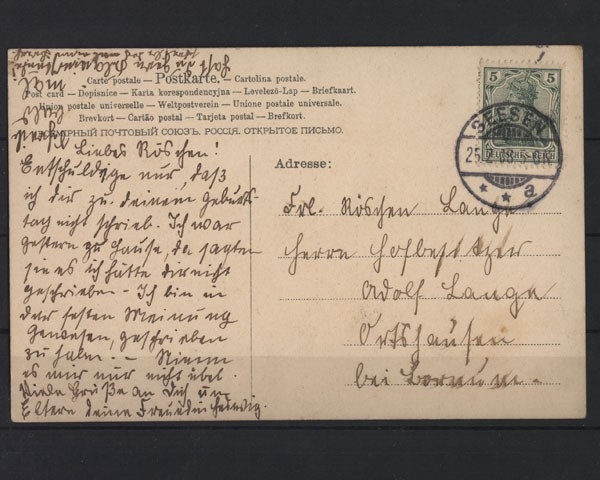 Carte postale — Postkarte. — Cartolina postale.
Post card — Dopisnice — Karta korespondencyjna — Levelező-Lap — Briefkaart.
Union postale universelle — Weltpostverein — Unione postale universale.
Brevkort — Cartão postal — Tarjeta postal — Brefkort.
ВСЕМІРНЫЙ ПОЧТОВЫЙ СОЮЗЪ. РОССІЯ. ОТКРЫТОЕ ПИСЬМО.
Liebes Röschen!
Entschuldige nur, daß
ich dir zu deinem Geburts-
tag nicht schrieb. Ich war
gestern zu Hause, da sagten
sie es ich hätte dir nicht
geschrieben. Ich bin in
der festen Meinung
gewesen, geschrieben
zu habn. — Nimm
es mir nur nicht übel.
Viele Grüße an Dich u.
Eltern deine Freundin
5 5
DEUTSCHES REICH
SEESEN
25
a
Adresse:
Frl. Röschen Lange
Herrn Hofbesitzer
Adolf Lange
Ortshausen
bei Bornum.